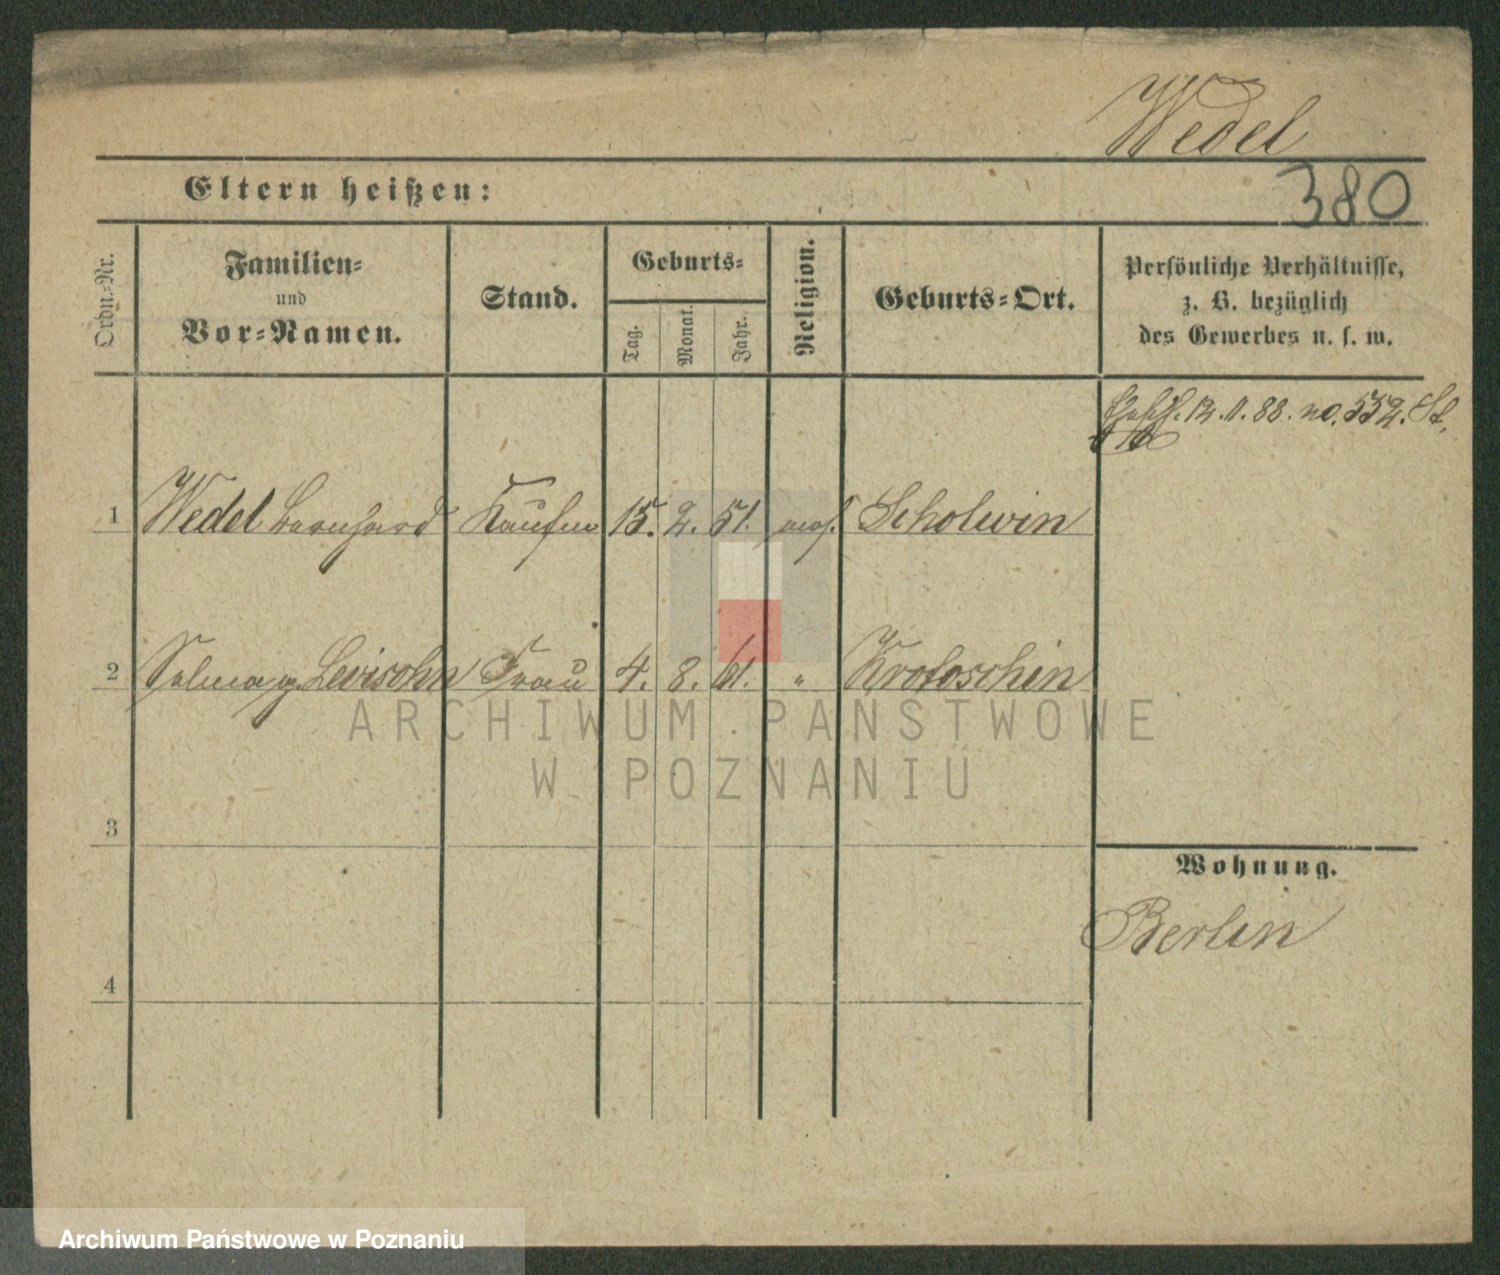 Wedel
Eltern heißen:
380
Ordn.-Nr.
Familien-
und
Vor-Namen.
Stand.
Geburts-
Tag.
Monat.
Jahr.
Religion.
Geburts-Ort.
Persönliche Verhältnisse,
z. B. bezüglich
des Gewerbes u. s. w.
12.11.88. no. 552. St.
1 Wedel Bernhard Kaufm 15. 2. 51. mos. Scholwin
2 Selma g. Levisohn Frau 4. 8. 61. " Krotoschin
3
Wohnung.
Berlin
4
ARCHIWUM PAŃSTWOWE
W POZNANIU
Archiwum Państwowe w Poznaniu